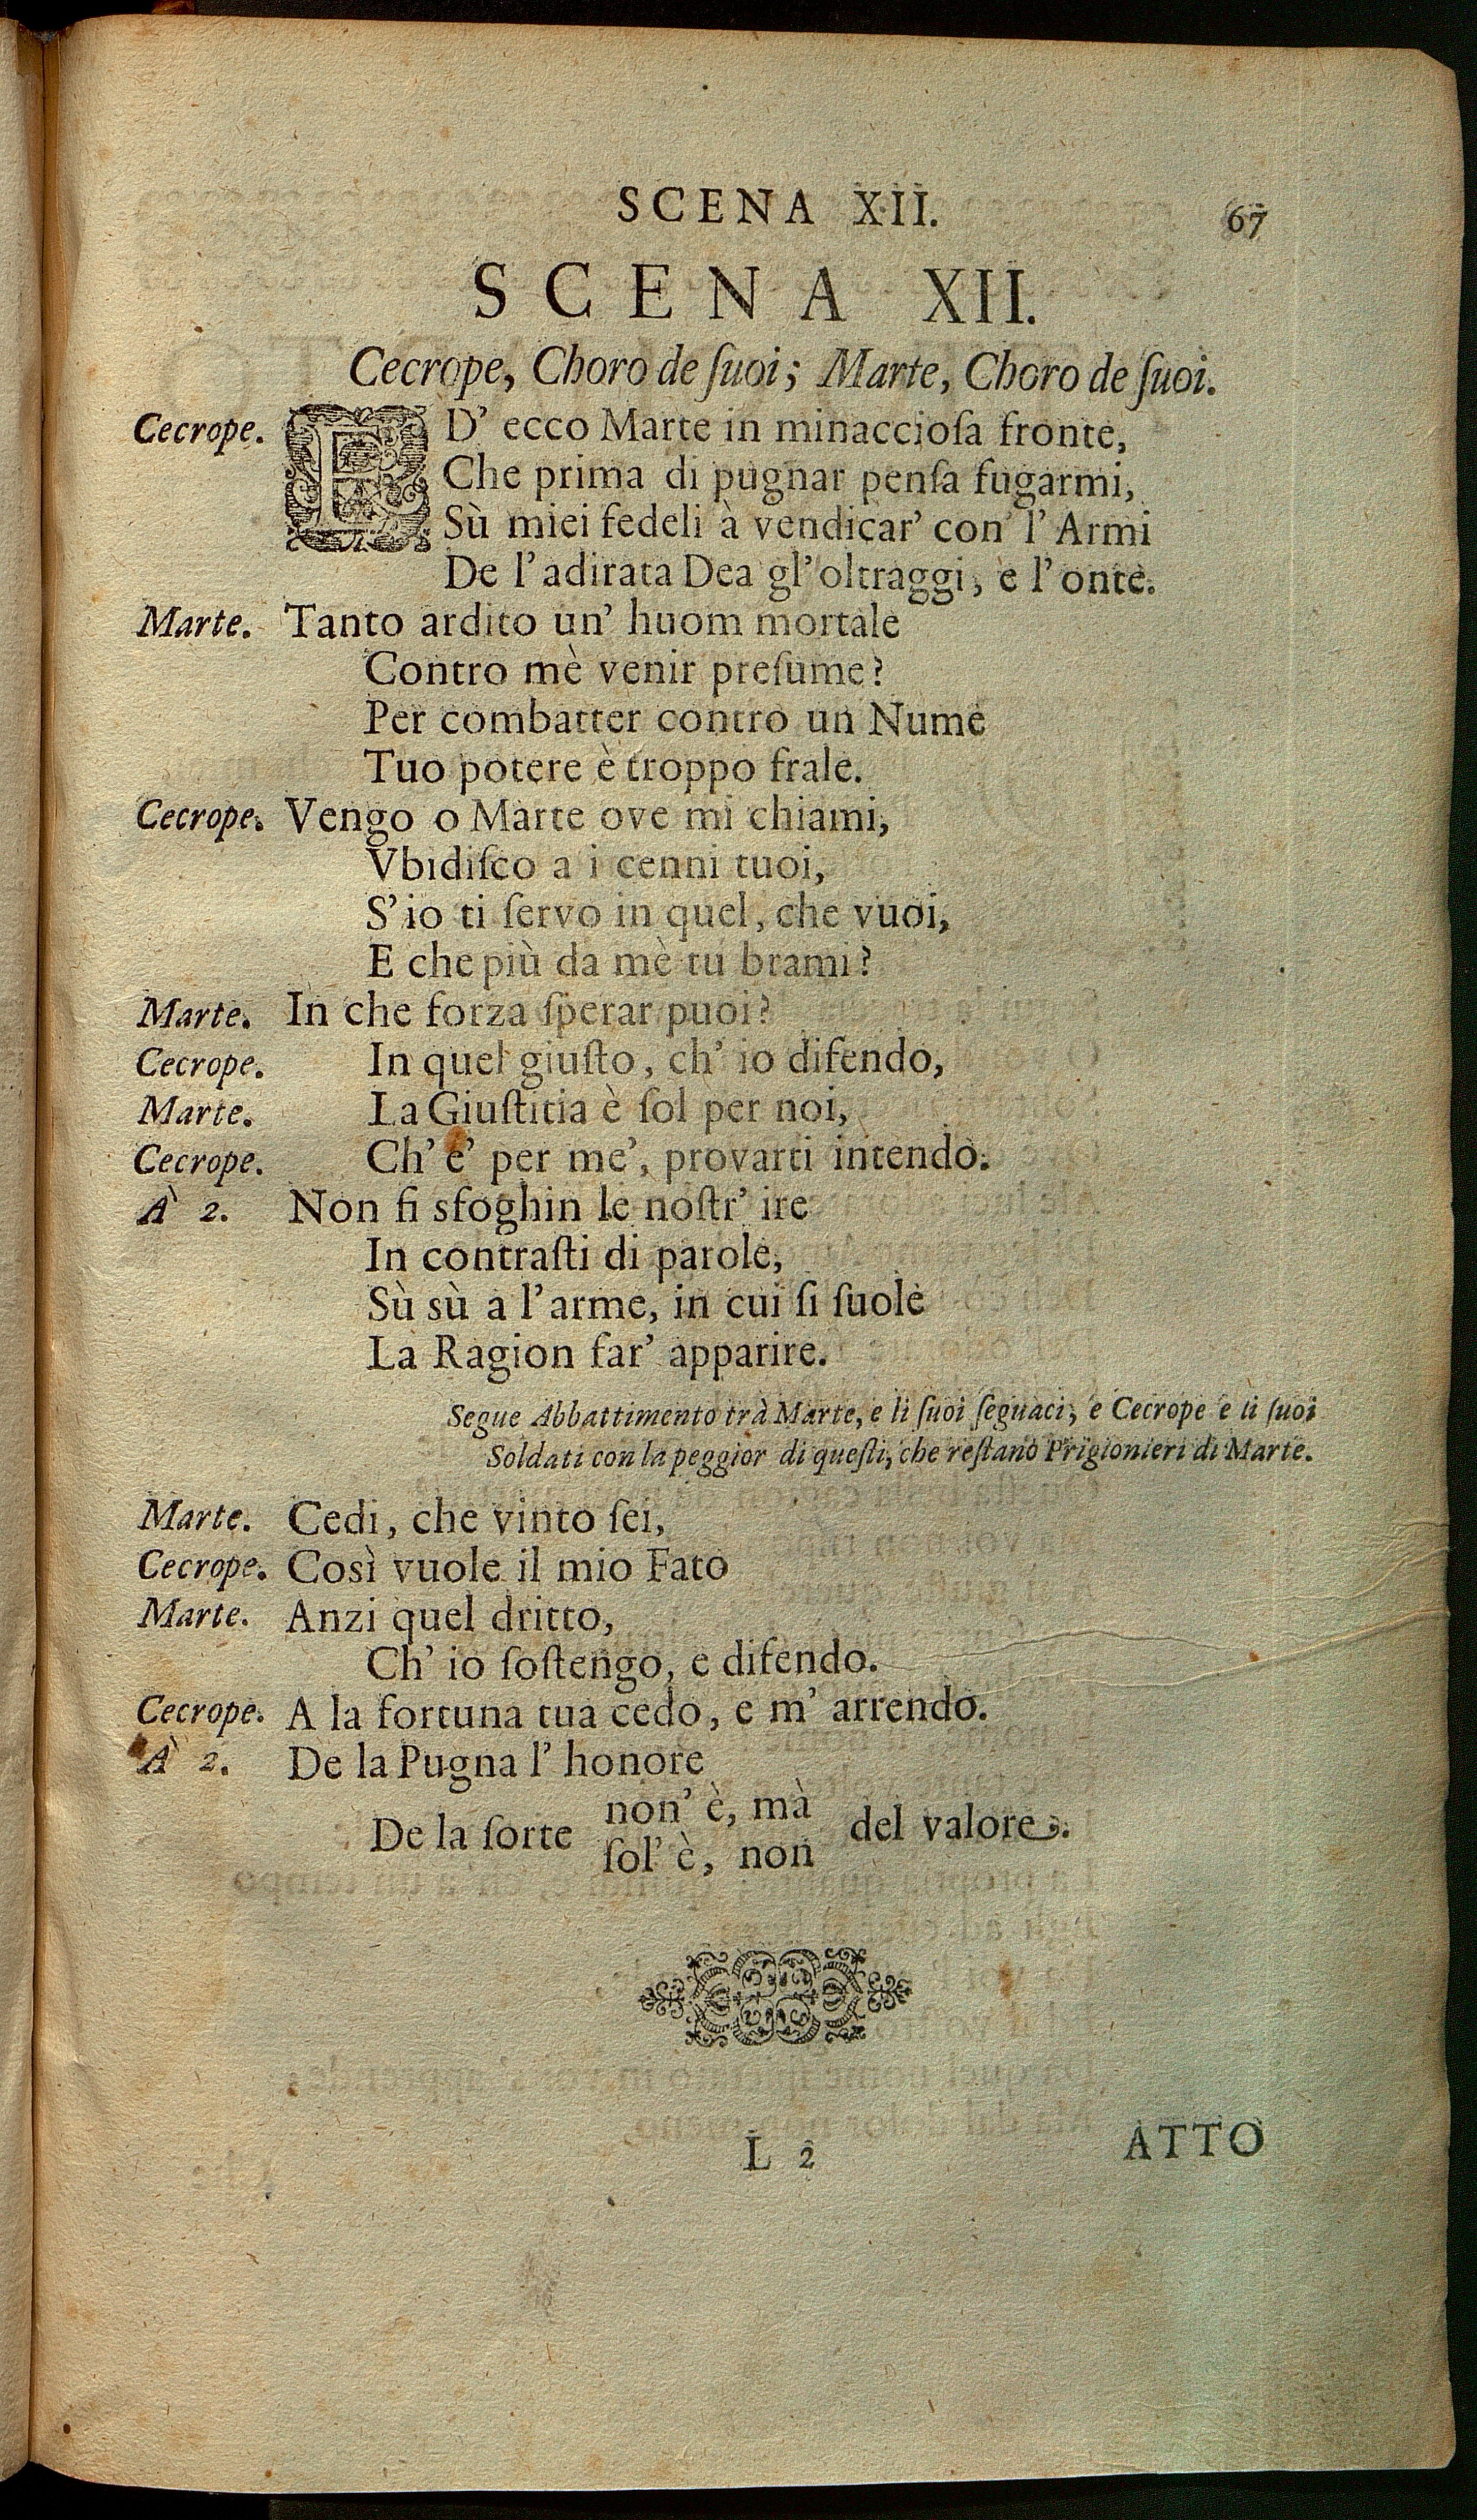 SCENA XII. 67
SCENA XII.
Cecrope, Choro de ſuoi; Marte, Choro de ſuoi.
Cecrope. ED' ecco Marte in minaccioſa fronte,
Che prima di pugnar penſa fugarmi,
Sù miei fedeli à vendicar' con l' Armi
De l'adirata Dea gl'oltraggi, e l'onte.
Marte. Tanto ardito un' huom mortale
Contro mè venir preſume?
Per combatter contro un Nume
Tuo potere è troppo frale.
Cecrope. Vengo o Marte ove mi chiami,
Vbidiſco a i cenni tuoi,
S'io ti ſervo in quel, che vuoi,
E che più da mè tu brami?
Marte. In che forza ſperar puoi?
Cecrope. In quel giuſto, ch' io difendo,
Marte. La Giuſtitia è ſol per noi,
Cecrope. Ch' e' per me', provarti intendo.
À 2. Non ſi sfoghin le noſtr' ire
In contraſti di parole,
Sù sù a l'arme, in cui ſi ſuole
La Ragion far' apparire.
Segue Abbattimento trà Marte, e li ſuoi ſeguaci, e Cecrope e li ſuoi
Soldati con la peggior di queſti, che reſtano Prigionieri di Marte.
Marte. Cedi, che vinto ſei,
Cecrope. Così vuole il mio Fato
Marte. Anzi quel dritto,
Ch' io ſoſtengo, e difendo.
Cecrope. A la fortuna tua cedo, e m' arrendo.
À 2. De la Pugna l' honore
non' è, mà
De la ſorte del valore.
ſol' è, non
L 2 ATTO